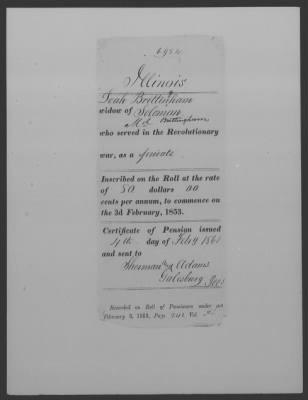 Illinois
Leah Brittingham
widow of Solomon
Brittingham
who served in the Revolutionary
war, as a private
Inscribed on the Roll at the rate
of 50 dollars 00
cents per annum, to commence on
the 3d February, 1853.
Certificate of Pension issued
4th day of Feby
and sent to
Sherman Adams
Galesburg
Recorded on Roll of Pensioners under act
February 3, 1853, Page Vol.